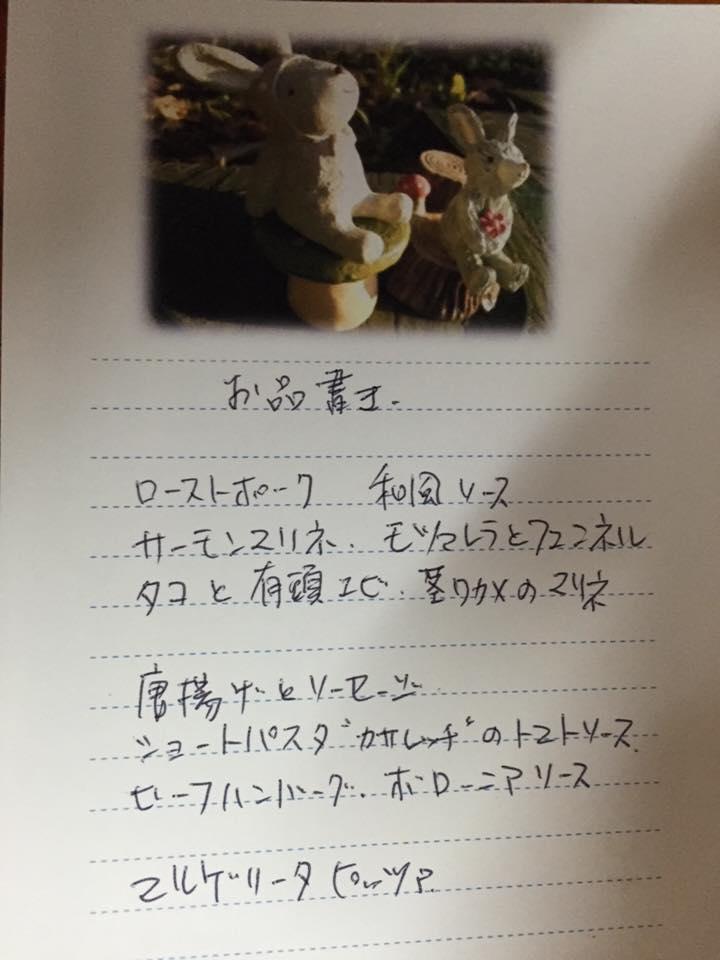 お品書き.
ローストポーク 和風ソース
サーモンマリネ、モッツァレラとフェンネル
タコと有頭エビ、茎ワカメのマリネ
唐揚げとソーセージ
ショートパスタ"カサレッチェ"のトマトソース
ビーフハンバーグ、ボローニアソース
マルゲリータピッツァ